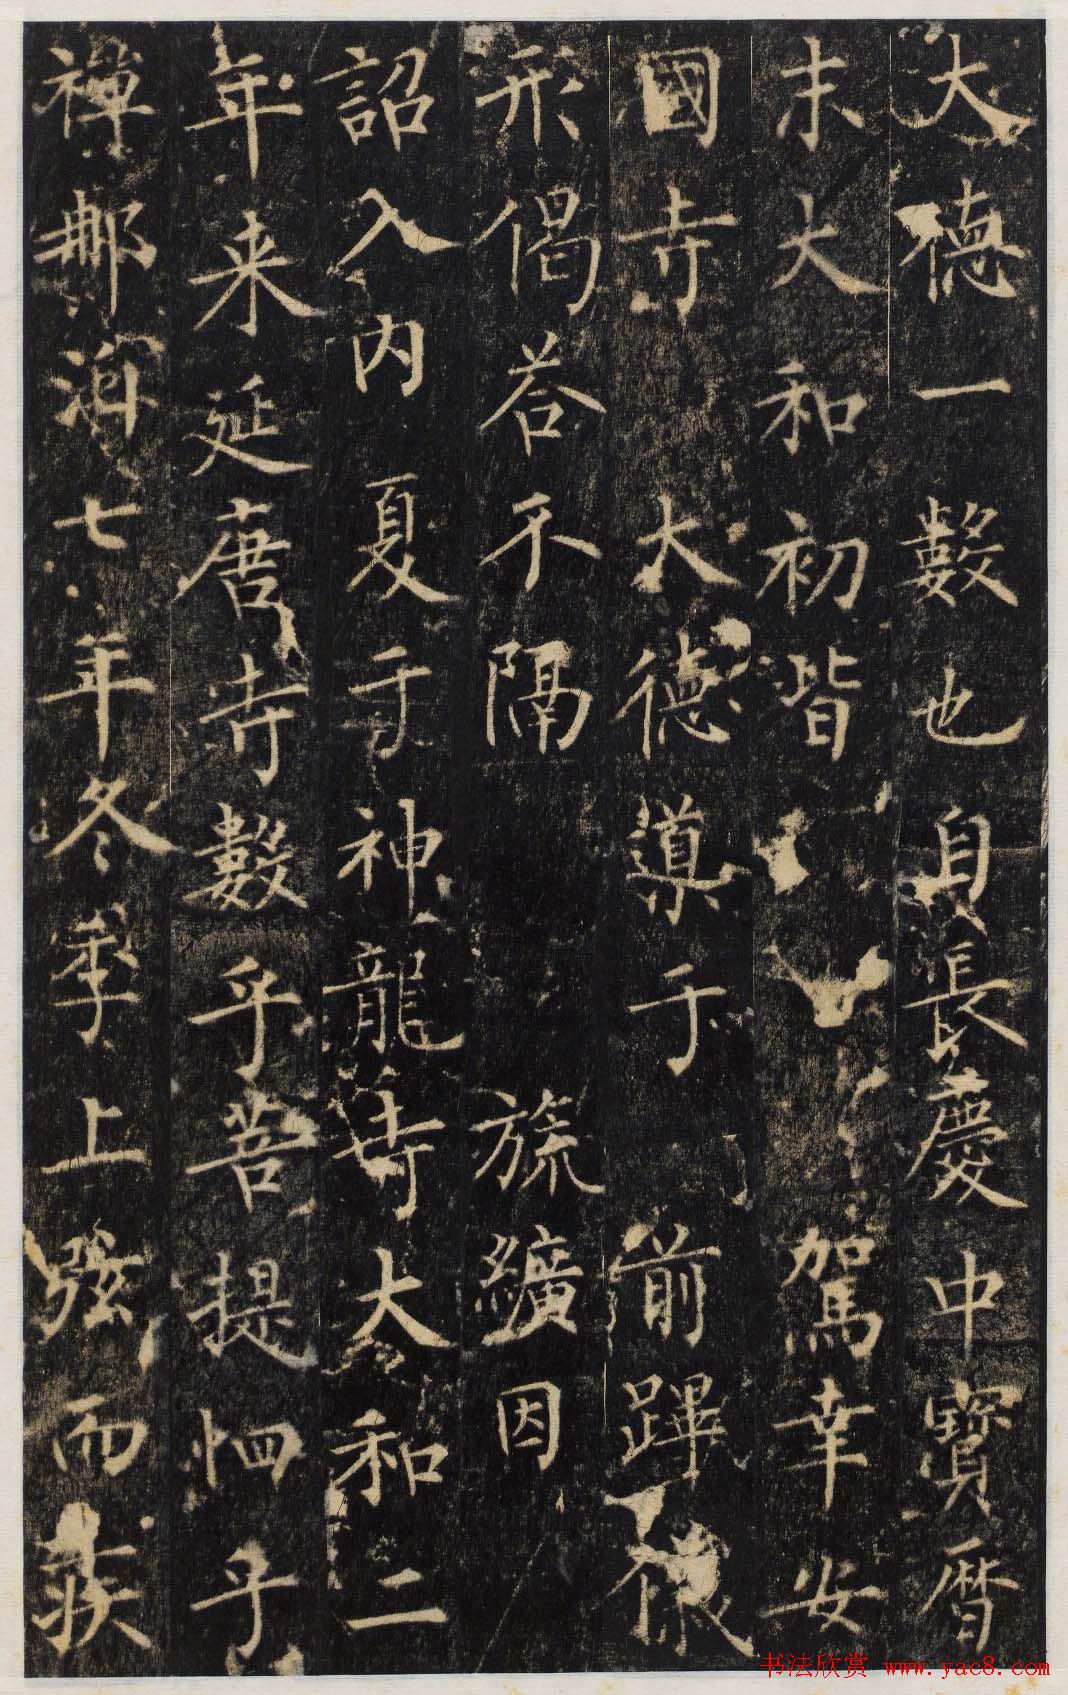 大德一數也自長慶中寶曆
末大和初皆駕幸安
國寺大德導于前蹕
形偈荅不隔旒纊因
詔入内夏于神龍寺大和二
年来延唐寺數乎菩提乎
禪郍洎七年冬季上弦而疾
书法欣赏 www.yac8.com